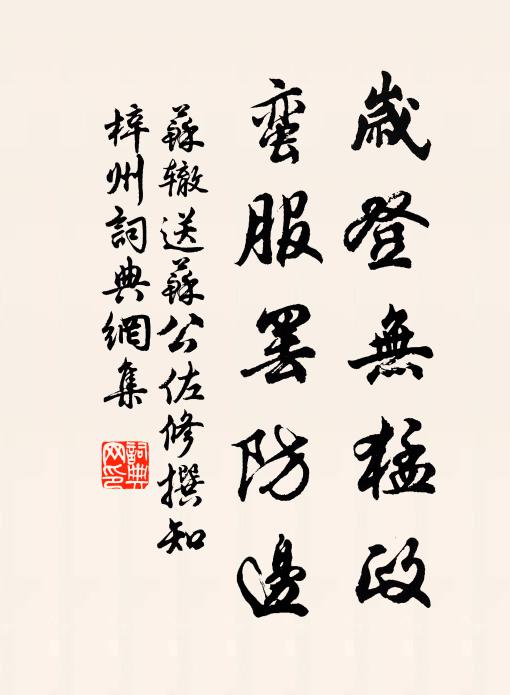 歲登無猛政
蛮服罢防邊
蘇辙送蘇公佐修撰知
梓州詞典網集
詞典网印